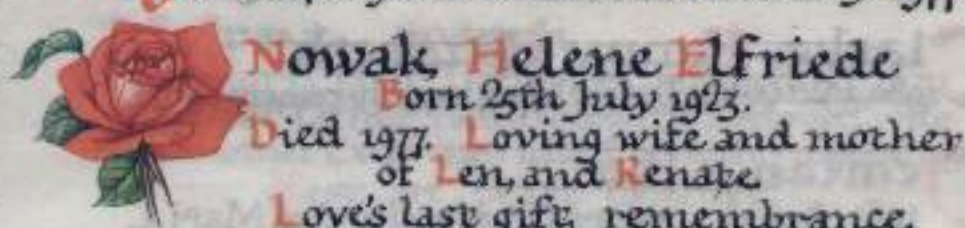 Nowak, Helene Elfriede
Born 25th July 1923.
Died 1977. Loving wife and mother
of Len, and Renate
Love's last gift, remembrance.